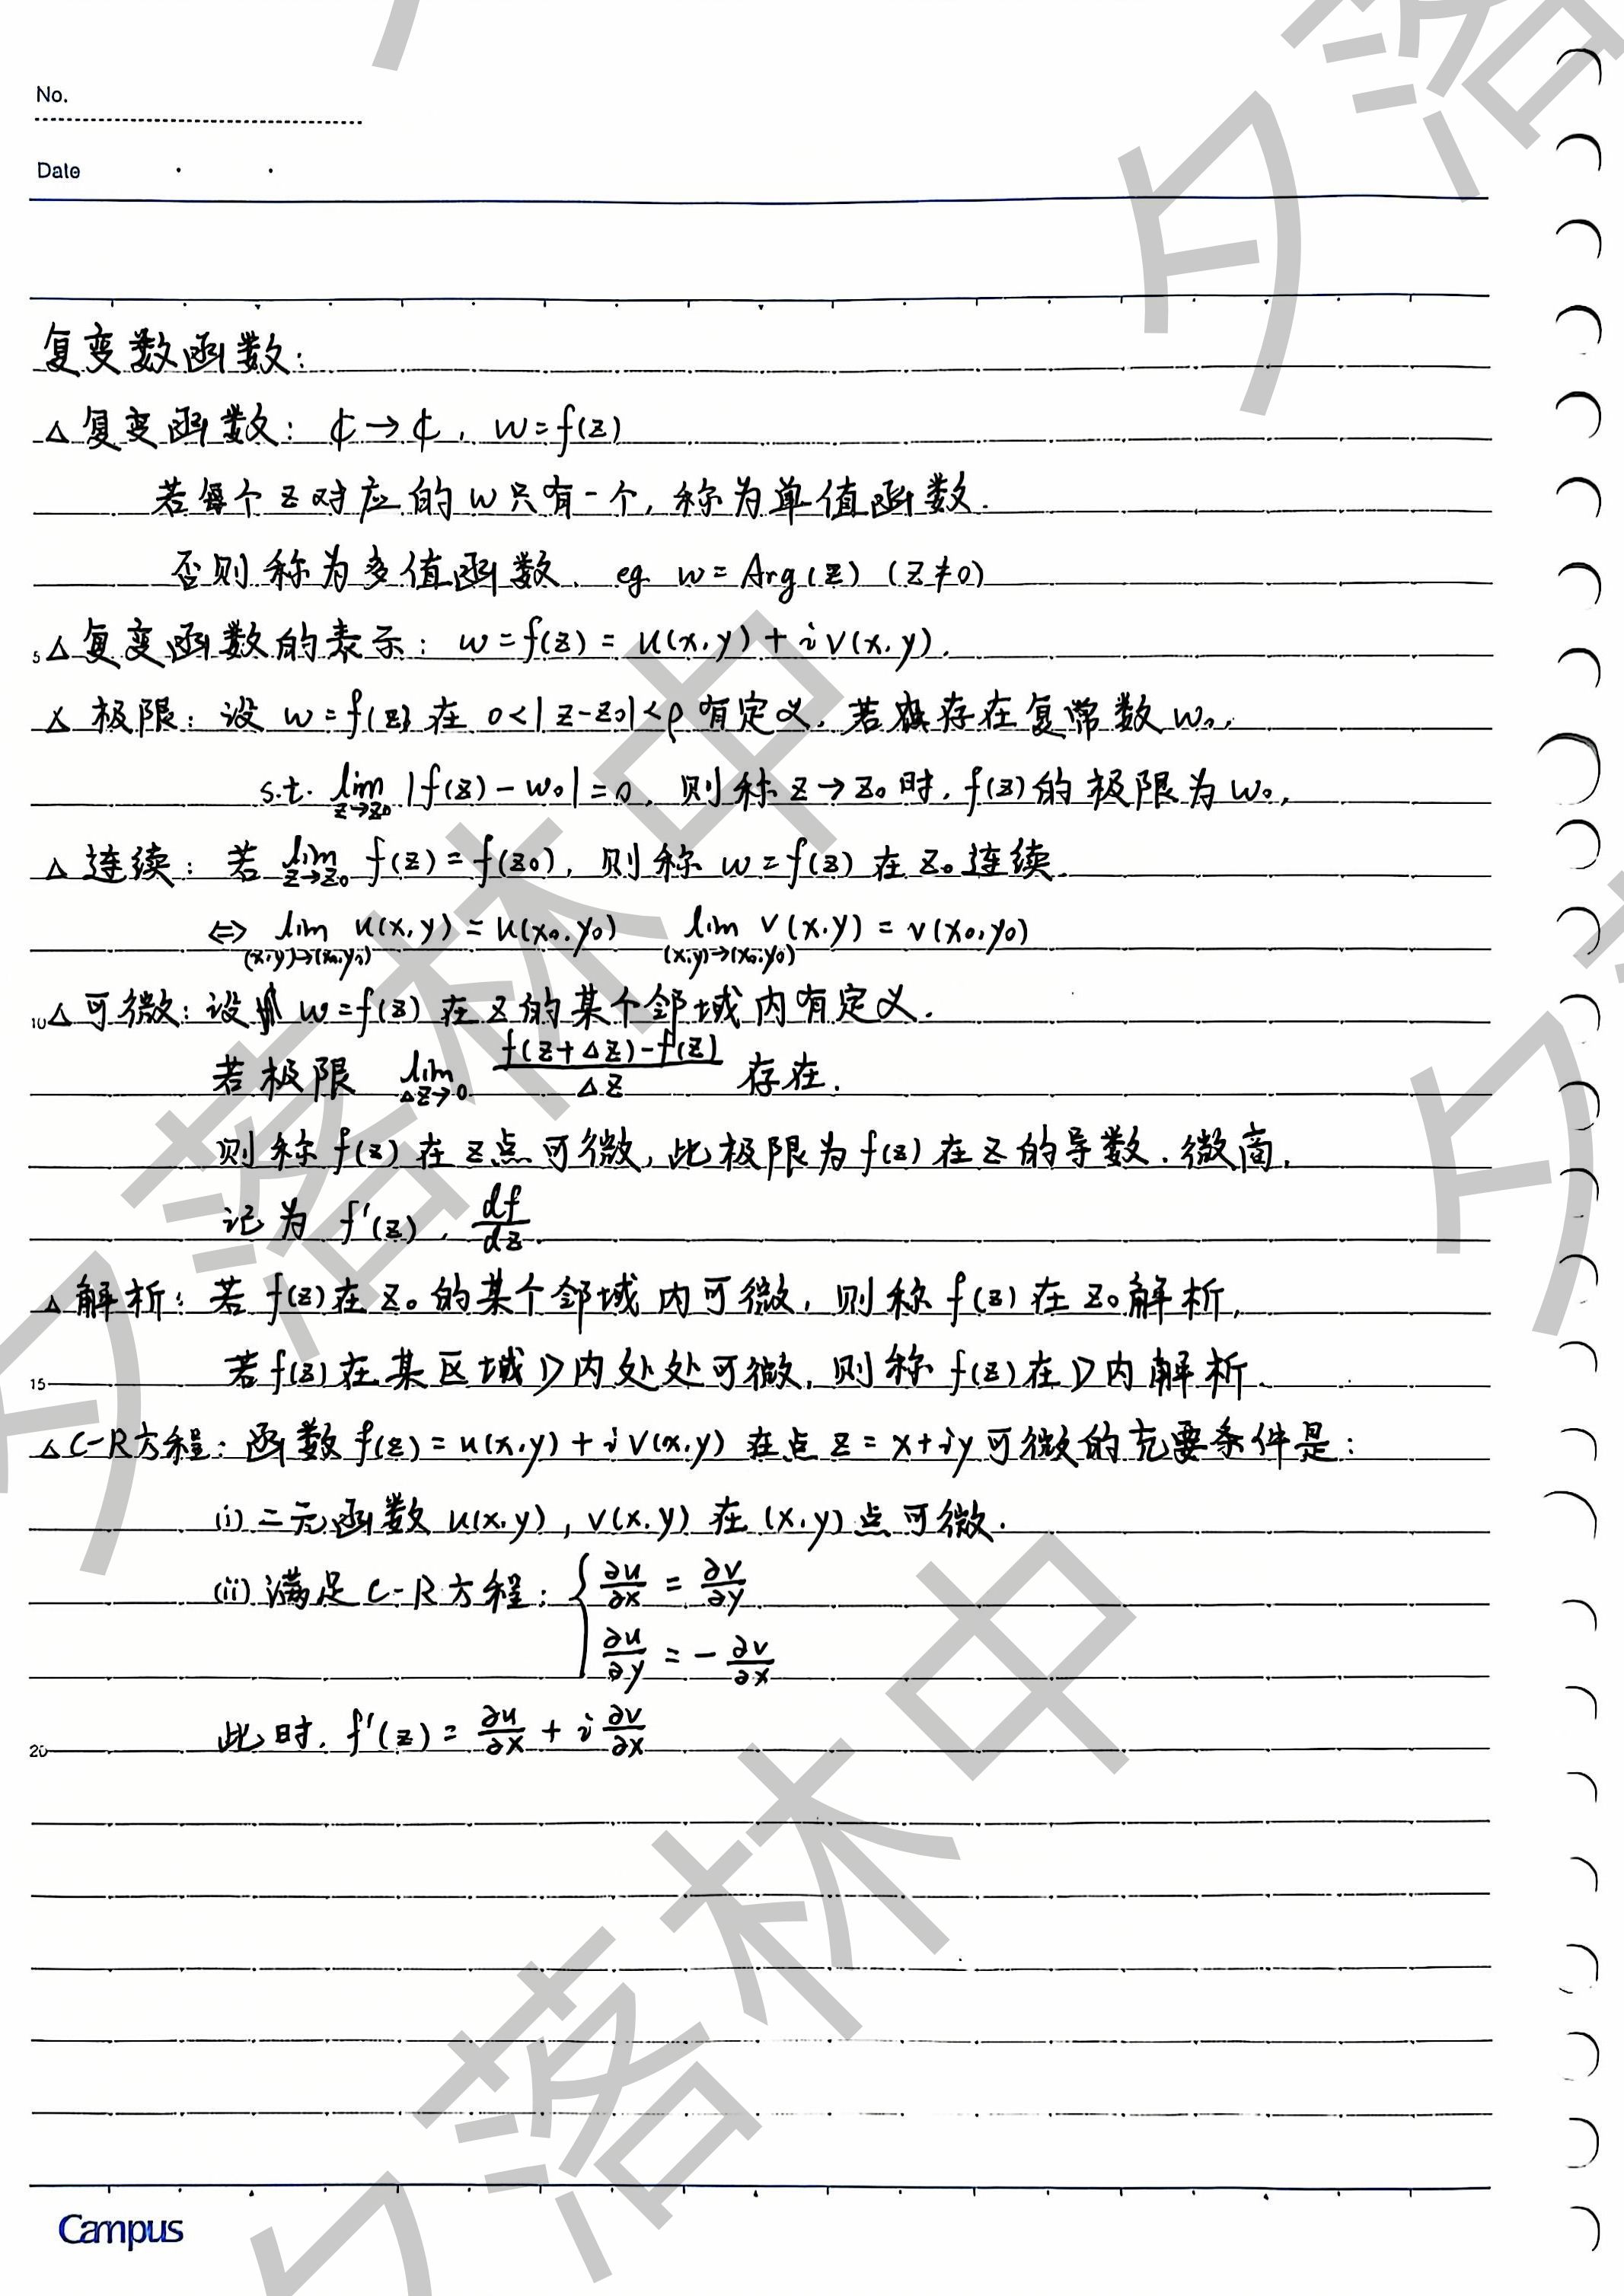 No.
Date
复变数函数：
△ 复变函数：ℂ→ℂ，w=f(z)
若每个z对应的w只有一个，称为单值函数.
否则称为多值函数. eg. w=Arg(z) (z≠0)
5 △ 复变函数的表示：w=f(z)=u(x,y)+iv(x,y).
△ 极限：设 w=f(z) 在 0<|z-z₀|<ρ 有定义，若存在复常数w₀,
s.t. lim_{z→z₀} |f(z)-w₀|=0，则称z→z₀时，f(z)的极限为w₀,
△ 连续：若 lim_{z→z₀} f(z)=f(z₀)，则称 w=f(z) 在 z₀连续.
⇔ lim_{(x,y)→(x₀,y₀)} u(x,y)=u(x₀,y₀) lim_{(x,y)→(x₀,y₀)} v(x,y)=v(x₀,y₀)
10 △ 可微：设 w=f(z) 在z的某个邻域内有定义.
若极限 lim_{△z→0} (f(z+△z)-f(z))/△z 存在.
则称f(z)在z点可微，此极限为f(z)在z的导数.微商,
记为 f'(z), df/dz.
△ 解析：若f(z)在z₀的某个邻域内可微，则称f(z)在z₀解析,
15 若f(z)在某区域D内处处可微，则称f(z)在D内解析.
△ C-R方程：函数f(z)=u(x,y)+iv(x,y) 在点z=x+iy可微的充要条件是：
(i) 二元函数u(x,y), v(x,y) 在(x,y)点可微.
(ii) 满足C-R方程：{ ∂u/∂x = ∂v/∂y
∂u/∂y = -∂v/∂x
20 此时, f'(z) = ∂u/∂x + i ∂v/∂x
Campus
夕落林中
夕落林中
夕落
夕落